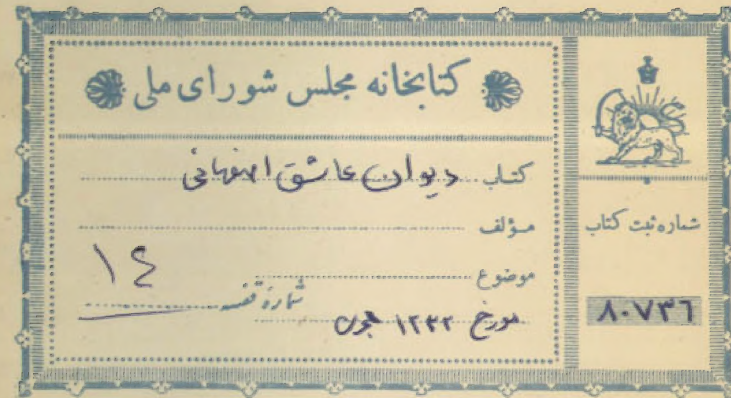 کتابخانه مجلس شورای ملی
کتاب دیوان عاشق اصفهانی
مؤلف
موضوع
شماره قفسه ۱٤
مورخ ۱۲۳۲ هجری
شماره ثبت کتاب
۸۰۷۳٦